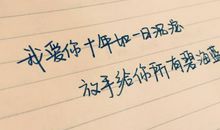 我爱你十年如一日泥泞
放手给你所有碧海蓝